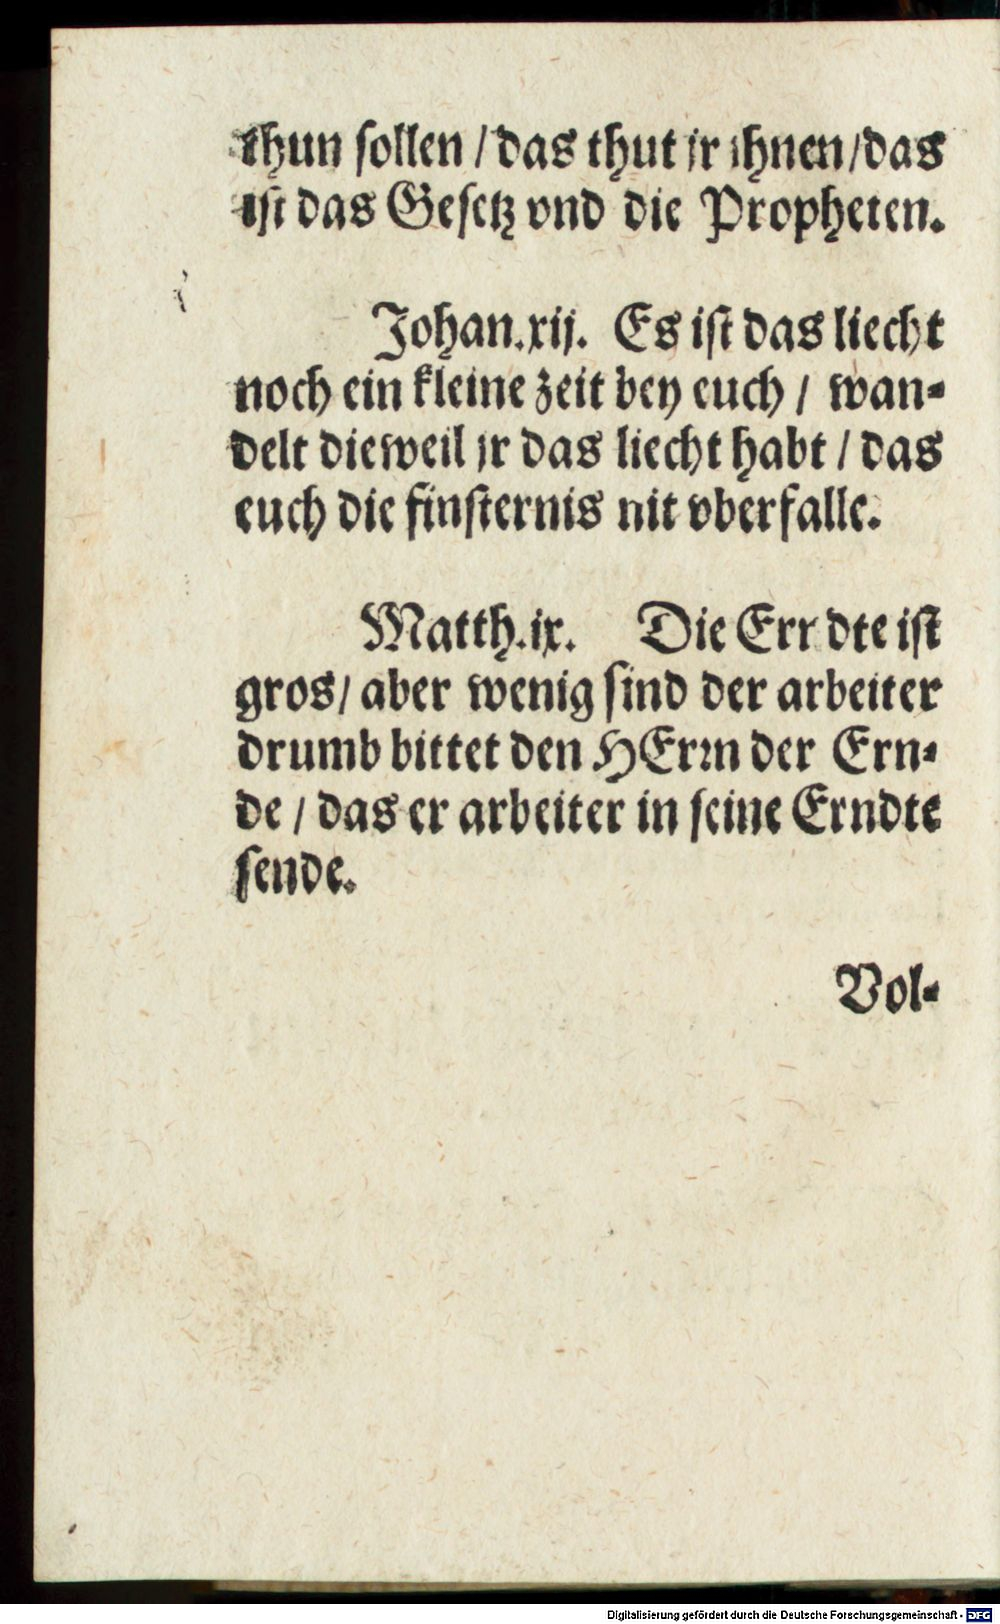 thun ſollen / das thut jr ihnen / das
iſt das Geſetz vnd die Propheten.
Johan.xij. Es iſt das liecht
noch ein kleine zeit bey euch / wan⸗
delt dieweil jr das liecht habt / das
euch die finſternis nit vberfalle.
Matth.ix. Die Errdte iſt
gros / aber wenig ſind der arbeiter
drumb bittet den HErrn der Ern⸗
de / das er arbeiter in ſeine Erndte
ſende.
Vol⸗
Digitalisierung gefördert durch die Deutsche Forschungsgemeinschaft - DFG